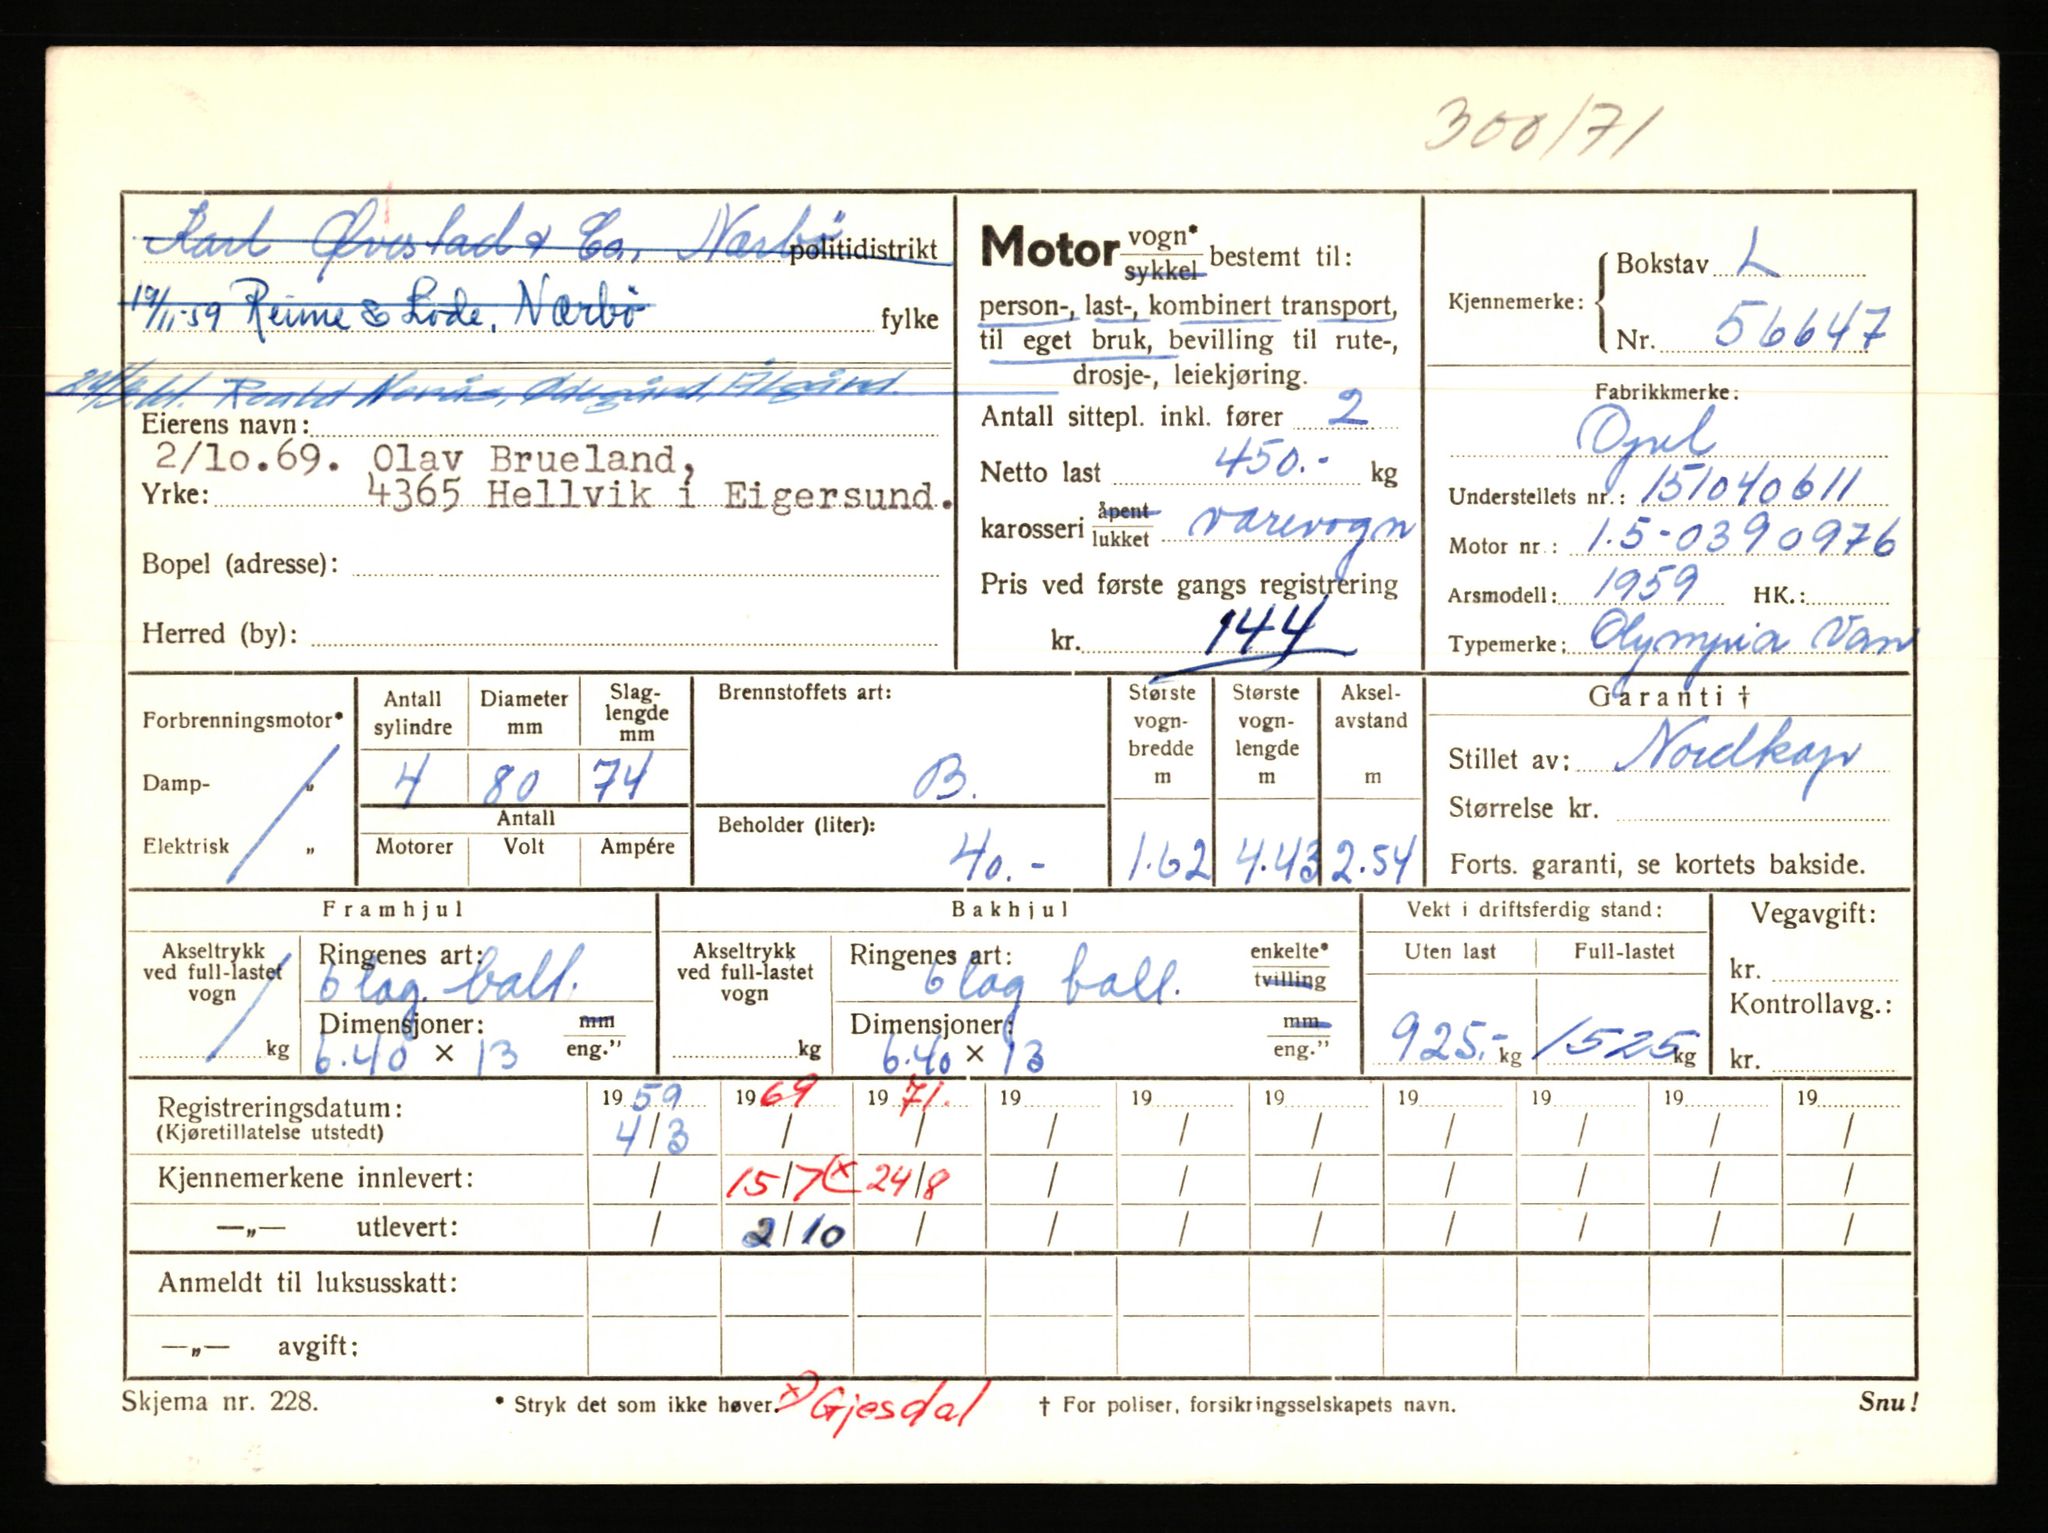 300/71
Karl Øvestad & Co, Nærbø politidistrikt
19/11-59 Reime & Lode, Nærbø fylke
Roald
Eierens navn:
2/10.69. Olav Brueland,
Yrke: 4365 Hellvik i Eigersund.
Bopel (adresse):
Herred (by):
Motor vogn* sykkel bestemt til:
person-, last-, kombinert transport,
til eget bruk, bevilling til rute-,
drosje-, leiekjøring.
Antall sittepl. inkl. fører 2
Netto last 450.- kg
karosseri åpent lukket varevogn
Pris ved første gangs registrering
kr. 144
Kjennemerke: Bokstav L
Nr. 56647
Fabrikkmerke:
Opel
Understellets nr.: 151040611
Motor nr.: 1.5-0390976
Arsmodell: 1959 HK.:
Typemerke: Olympia Van
Forbrenningsmotor*
Damp- „
Elektrisk „
Antall sylindre 4
Diameter mm 80
Slag-
lengde
mm 74
Antall
Motorer Volt Ampére
Brennstoffets art:
B.
Beholder (liter):
40.-
Største vogn-bredde m 1.62
Største vogn-lengde m 4.43
Aksel-avstand m 2.54
Garanti †
Stillet av: Nordkap
Størrelse kr.
Forts. garanti, se kortets bakside.
Framhjul
Akseltrykk
ved full-lastet
vogn
kg
Ringenes art:
6 lag. ball.
Dimensjoner: mm eng."
6.40 × 13
Bakhjul
Akseltrykk
ved full-lastet
vogn
kg
Ringenes art: enkelte* tvilling
6 lag ball.
Dimensjoner: mm eng."
6.40 × 13
Vekt i driftsferdig stand:
Uten last Full-lastet
925.- kg 1525 kg
Vegavgift:
kr.
Kontrollavg.:
kr.
Registreringsdatum: 19 59 19 69 19 71. 19 19 19 19 19 19 19
(Kjøretillatelse utstedt) 4/3 / / / / / / / / /
Kjennemerkene innlevert: / 15/7 (x 24/8 / / / / / / /
—„— utlevert: / 2/10 / / / / / / / /
Anmeldt til luksusskatt:
—„— avgift:
Skjema nr. 228. * Stryk det som ikke høver. x) Gjesdal † For poliser, forsikringsselskapets navn. Snu!